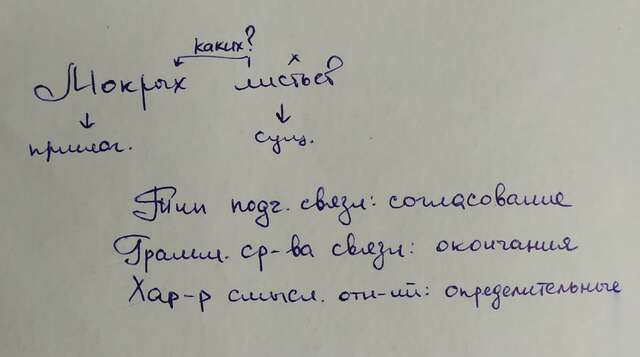 каких?
х
Мокрых листьев
прилаг. сущ.
Тип подч. связи: согласование
Грамм. ср-ва связи: окончания
Хар-р смысл. отн-ий: определительные